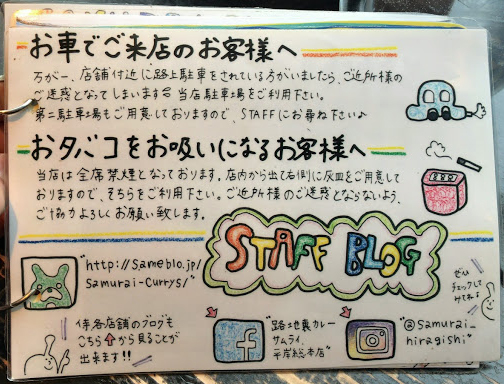 お車でご来店のお客様へ
万が一、店舗付近に路上駐車をされている方がいましたら、ご近所様の
ご迷惑となってしまいます 当店駐車場をご利用下さい。
第二駐車場もご用意しておりますので、STAFFにお尋ね下さい♪
おタバコをお吸いになるお客様へ
当店は全席禁煙となっております。店内から出て右側に灰皿をご用意して
おりますので、そちらをご利用下さい。ご近所様のご迷惑とならないよう、
ご協力よろしくお願い致します。
STAFF BLOG
"http://sameblo.jp/
samurai-currys/"
ぜひ
チェックして
みてね♪
侍各店舗のブログも
こちら↑から見ることが
出来ます!!
"路地裏カレー
サムライ.
平岸総本店"
"@samurai_
hiragishi"